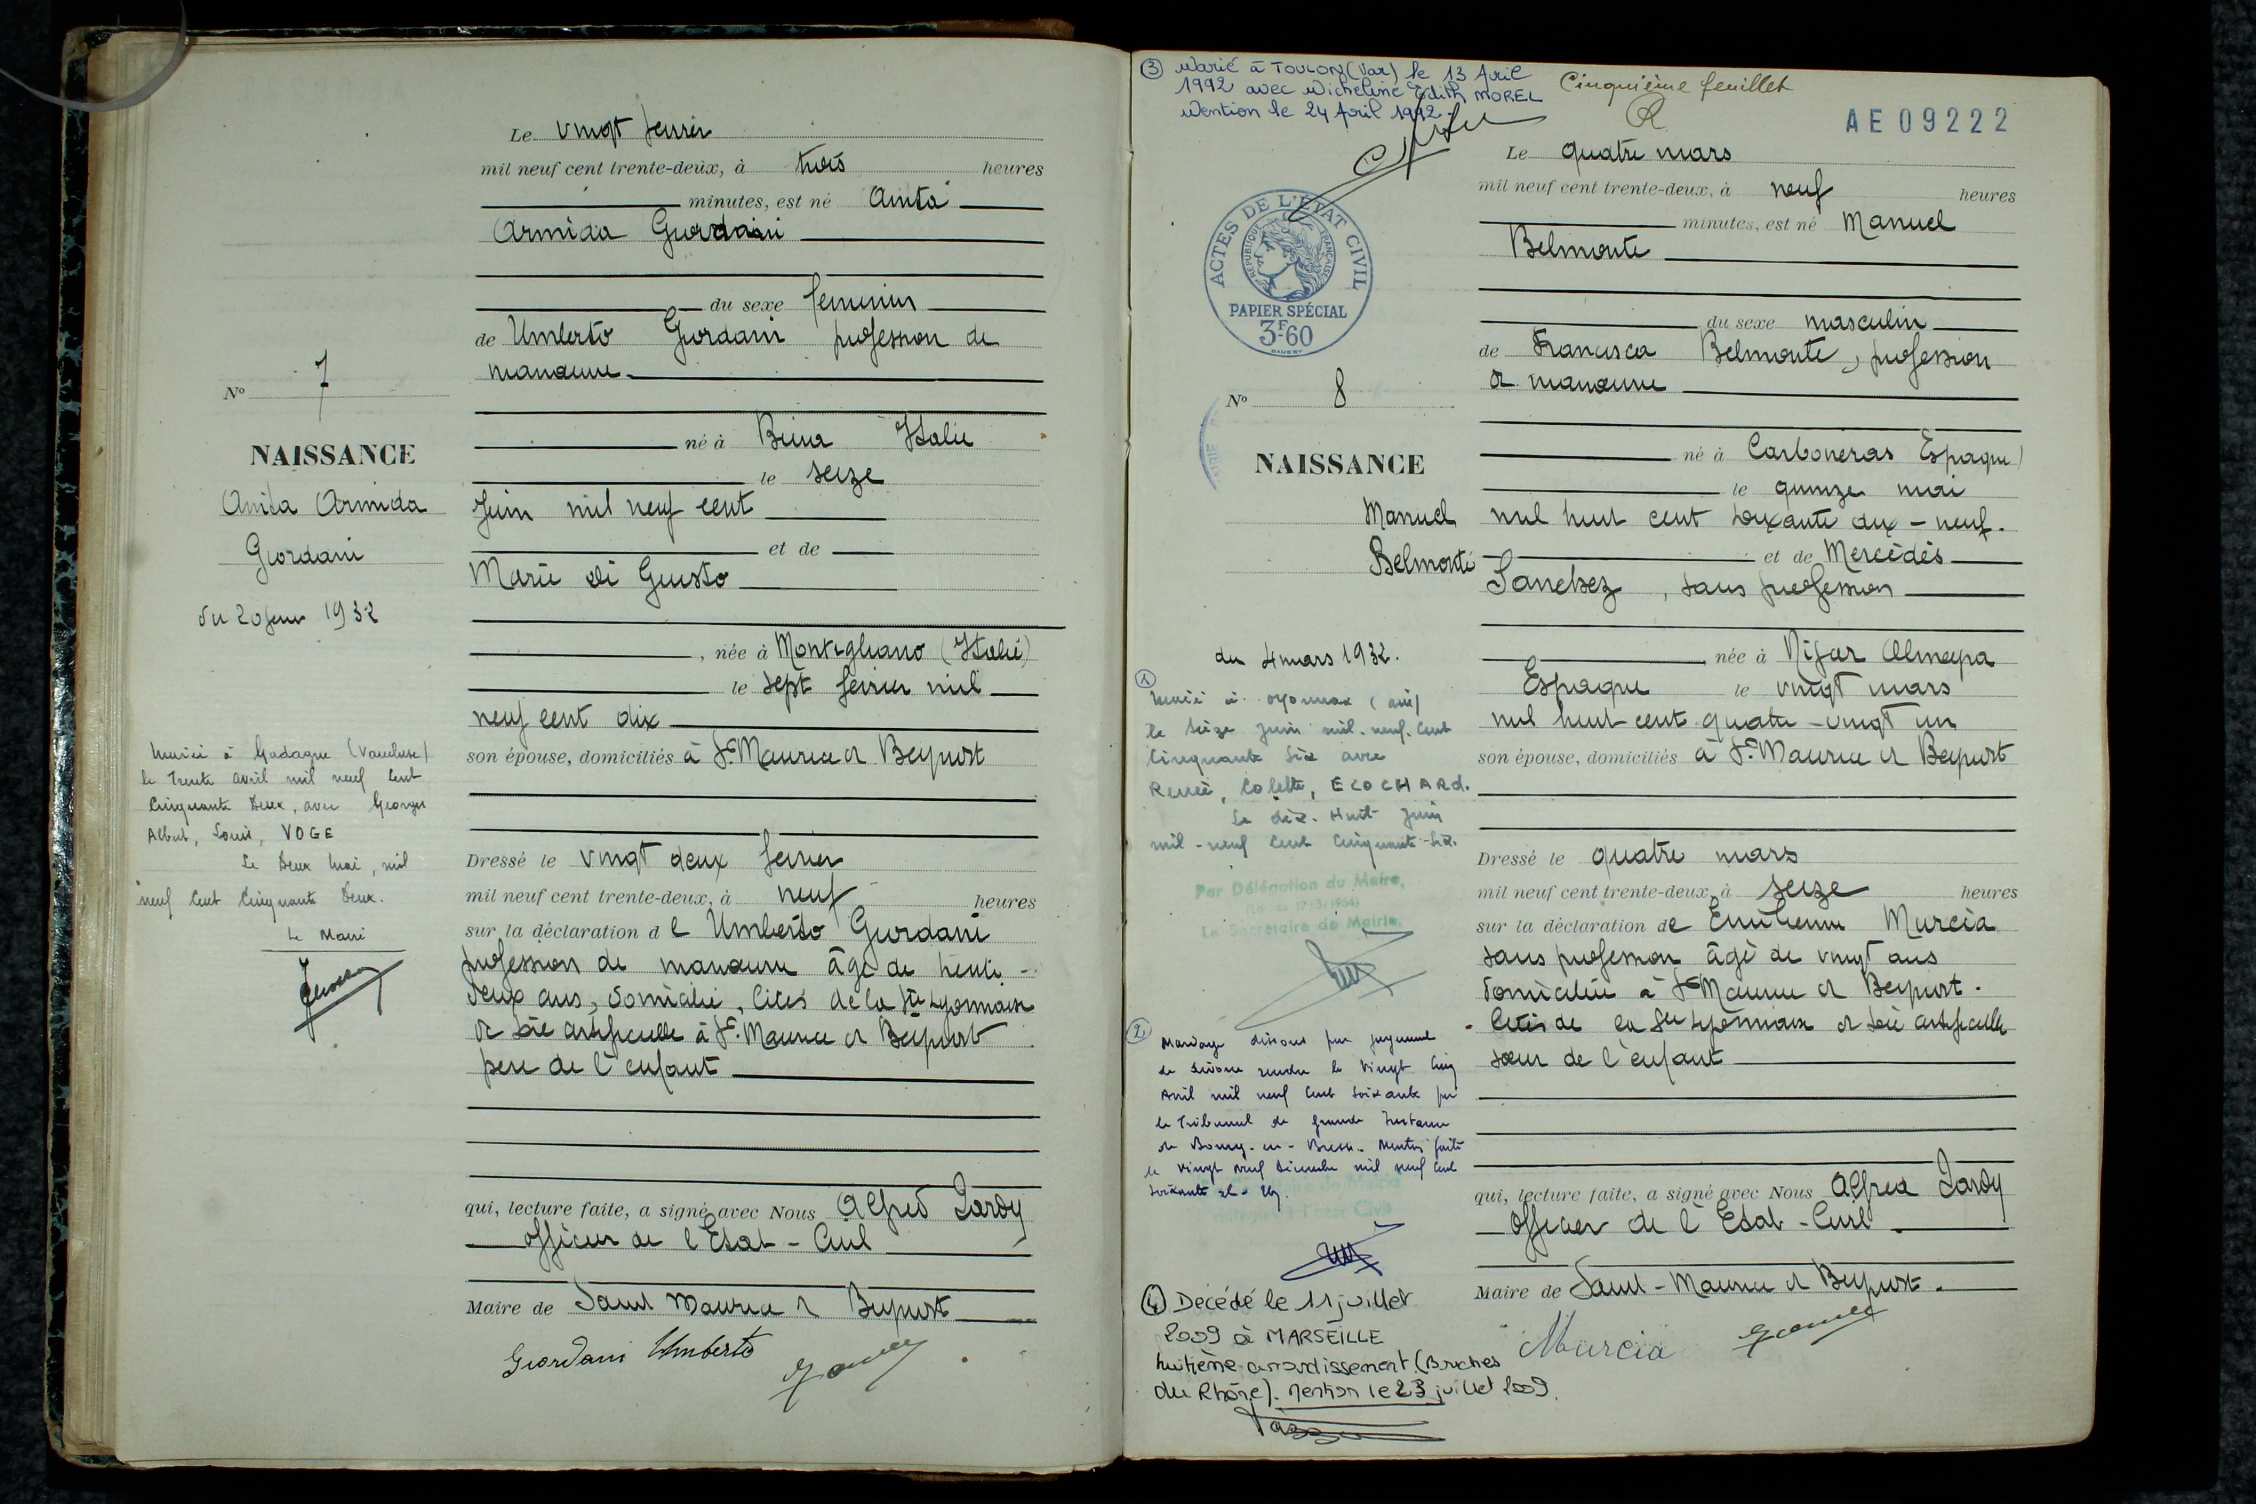 Le vingt fevrier
mil neuf cent trente-deux, à trois heures
minutes, est né Anita
Armida Giordani
du sexe feminin
de Umberto Giordani profession de
manœuvre
né à Italie
le seize
Juin mil neuf cent
et de
Marie di Giusto
, née à Montegliano (Italie)
le sept fevrier mil
neuf cent dix
son épouse, domiciliés à St Maurice de Beynost
Dressé le vingt deux fevrier
mil neuf cent trente-deux, à neuf heures
sur la déclaration de Umberto Giordani
profession de manœuvre âgé de trente-
deux ans, domicilié, Cités de la Sté Lyonnaise
de Soie artificielle à St Maurice de Beynost
père de l'enfant
qui, lecture faite, a signé avec Nous Alfred Jardy
officier de l'Etat-Civil
Maire de Saint Maurice de Beynost
Giordani Umberto
No 7
NAISSANCE
Anita Armida
Giordani
du 20 fevr 1932
Mariée à Gadagne (Vaucluse)
le trente avril mil neuf cent
cinquante deux, avec Georges
Albert, Louis, VOGE
Le deux Mai, mil
neuf cent cinquante deux.
Le Maire
③ Marié à TOULON (Var) le 13 Avril
1992 avec Micheline Edith MOREL
Mention le 24 Avril 1992.
Cinquième feuillet
AE 09222
ACTES DE L'ÉTAT CIVIL
RÉPUBLIQUE FRANÇAISE
PAPIER SPÉCIAL
3F60
No 8
NAISSANCE
Manuel
Belmonte
du 4 mars 1932.
①
Marié à Oyonnax (Ain)
le seize Juin mil-neuf-cent
cinquante six avec
Renée, Colette, ECOCHARD.
Le dix-Huit Juin
mil-neuf cent cinquante-six.
Par Délégation du Maire,
Le Secrétaire de Mairie.
②
Mariage dissous par jugement
de divorce rendu le vingt cinq
Avril mil neuf cent soixante par
le Tribunal de Grande Instance
de Bourg-en-Bresse. Mention faite
le vingt neuf Décembre mil neuf cent
soixante et un.
④ Décédé le 11 juillet
2009 à MARSEILLE
huitième arrondissement (Bouches
du Rhône). Mention le 23 juillet 2009.
Le quatre mars
mil neuf cent trente-deux, à neuf heures
minutes, est né Manuel
Belmonte
du sexe masculin
de Francisco Belmonte, profession
de manœuvre
né à Carboneras Espagne)
le quinze mai
mil huit cent soixante dix-neuf.
et de Mercédès
Sanchez, sans profession
née à Nijar
Espagne le vingt mars
mil huit cent quatre-vingt un
son épouse, domiciliés à St Maurice de Beynost
Dressé le quatre mars
mil neuf cent trente-deux, à seize heures
sur la déclaration de Emilienne Murcia
sans profession âgée de vingt ans
domiciliée à St Maurice de Beynost.
Cités de la Sté Lyonnaise de Soie artificielle
sœur de l'enfant
qui, lecture faite, a signé avec Nous Alfred Jardy
officier de l'Etat-Civil.
Maire de Saint-Maurice de Beynost.
Murcia